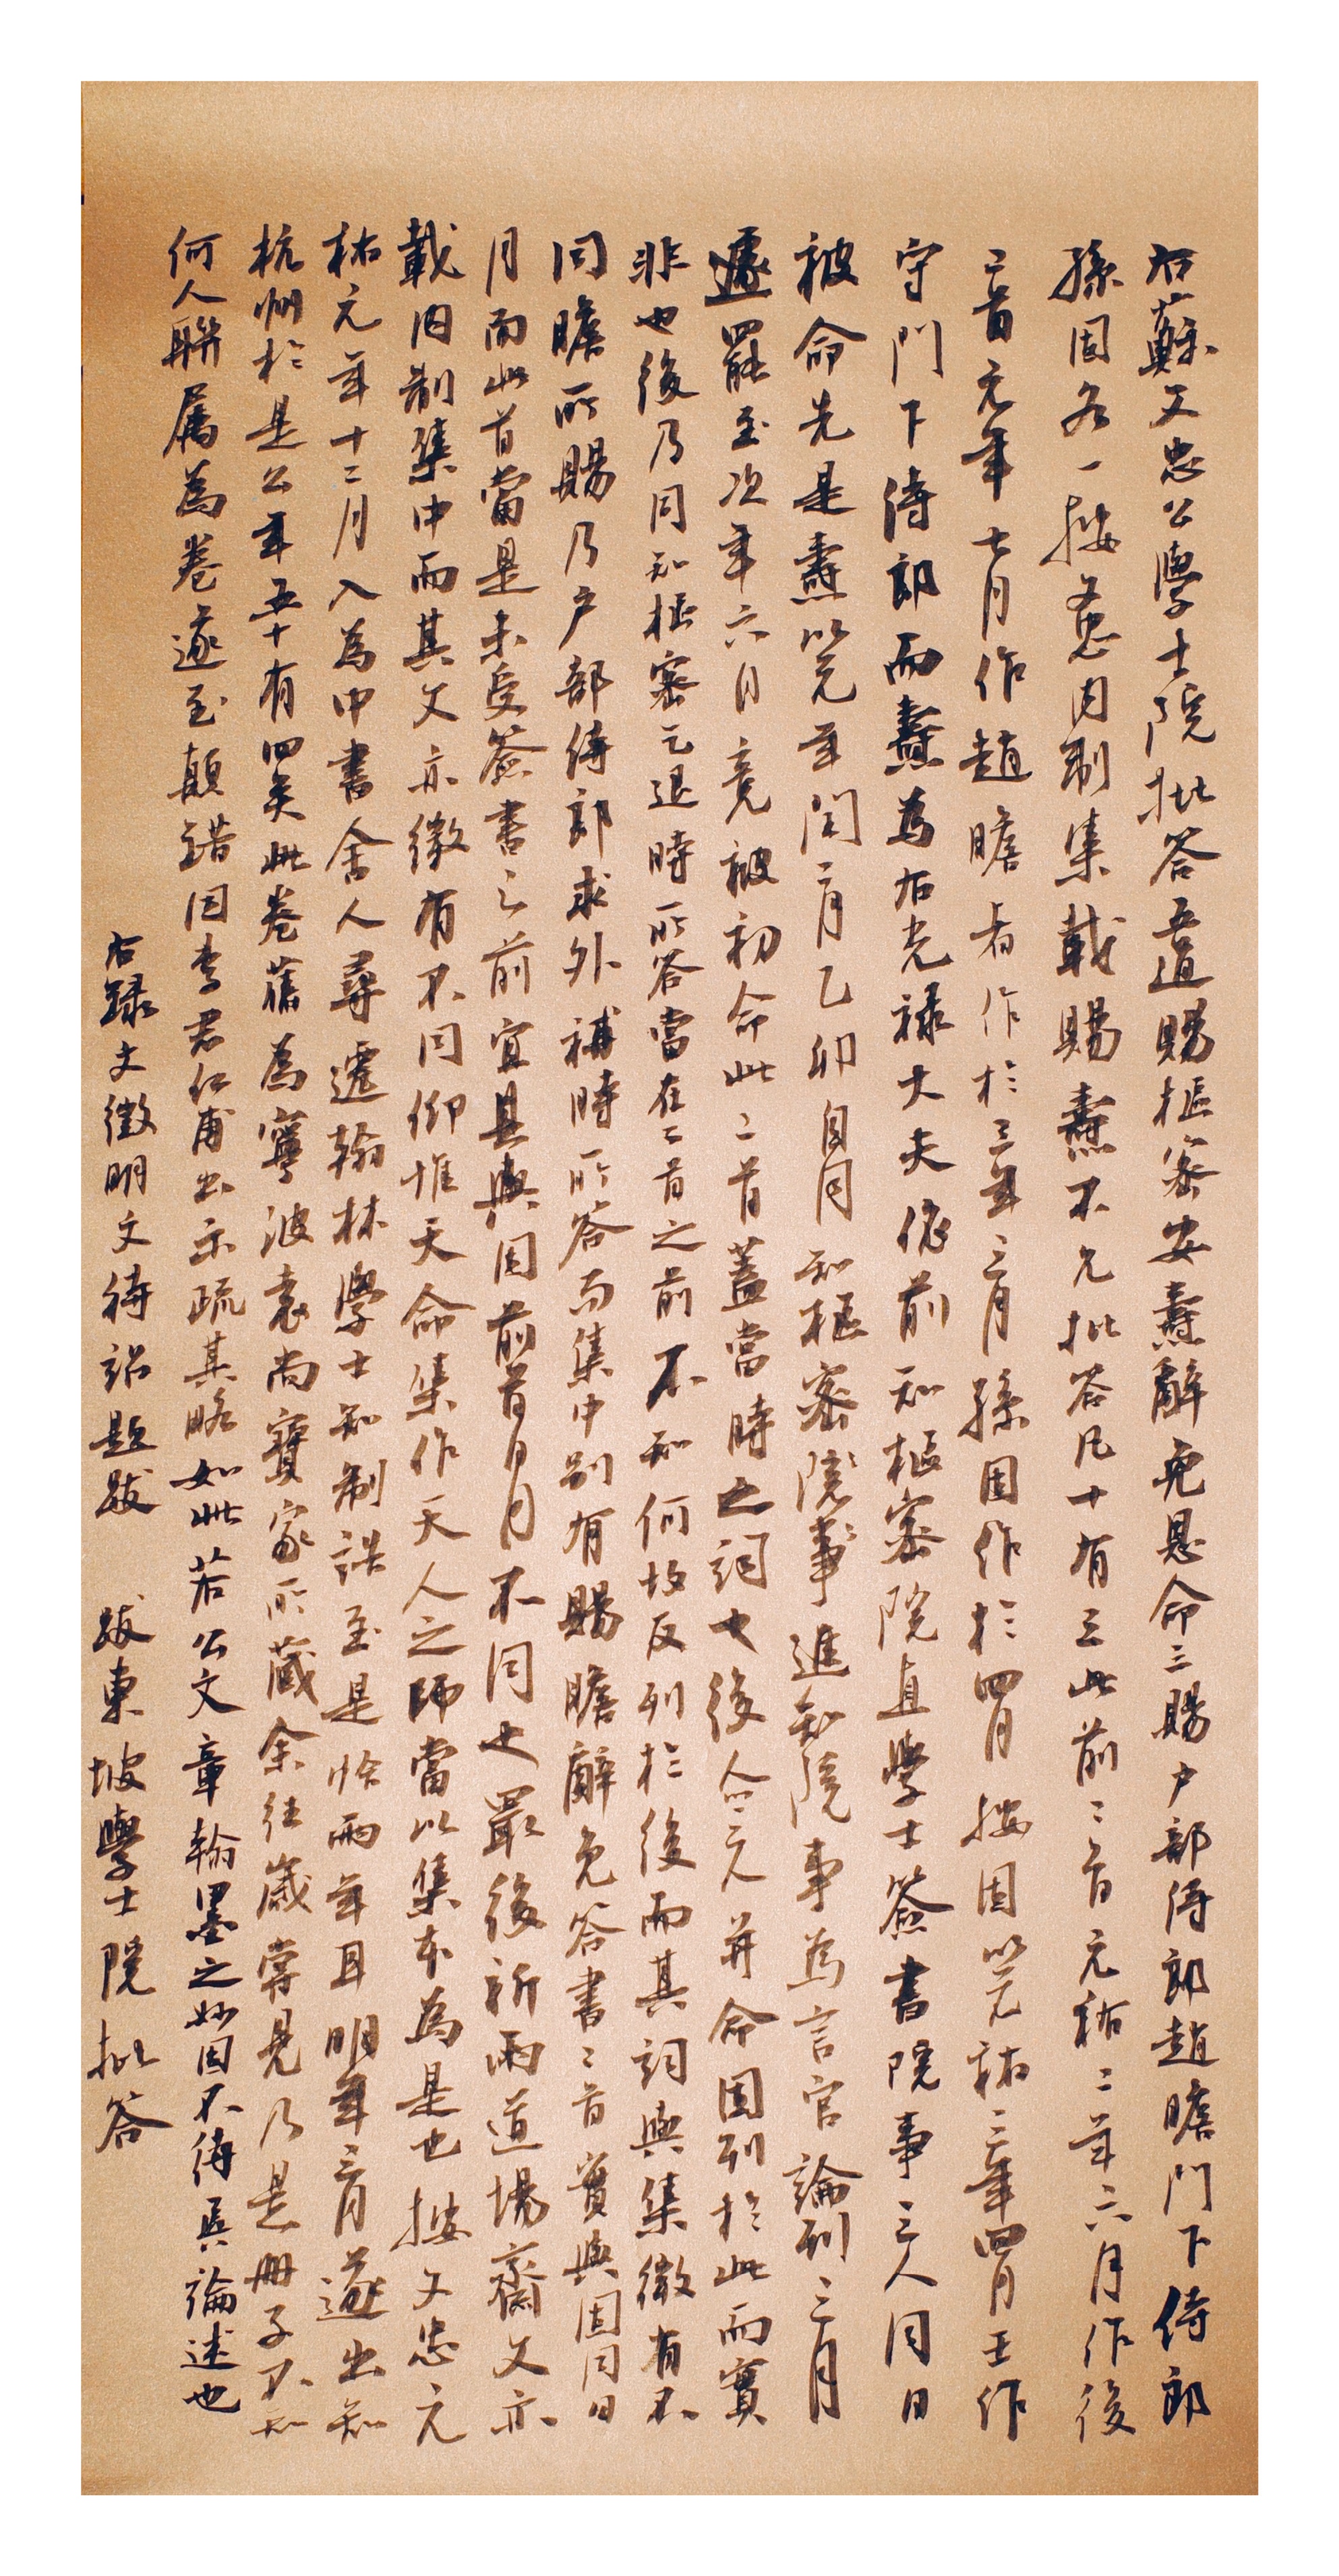 右蘇文忠公學士院批答五道賜樞密安燾辭免恩命三賜户部侍郎趙瞻門下侍郎
孫固各一按公内制集載賜燾不允批答凡十有三此前二首元祐二年六月作後
二首元年七月作趙瞻者作於三年二月孫固作於四月按固以元祐三年四月壬作
守門下侍郎而燾為右光祿大夫依前知樞密院直學士簽書院事三人同日
被命先是燾以元年閏二月乙卯自同知樞密院事進知院事為言官論列三月
遽罷至次年六月竟被初命此二首蓋當時之詞也後人合二元并命固列於此而實
非也後乃同知樞密乞退時所答當在二首之前不知何故反列於後而其詞與集微有不
同瞻所賜乃户部侍郎求外補時所答而集中别有賜瞻辭免答書二首實與固同日
月而此首當是未受簽書之前宜其與固前首月日不同也最後祈雨道場齋文亦
載内制集中而其文亦微有不同仰惟天命集作天人之師當以集本為是也按文忠元
祐元年十二月入為中書舍人尋遷翰林學士知制誥至是恰兩年耳明年三月遂出知
杭州於是公年五十有四矣此卷舊為寧波袁尚寶家所藏余往歲嘗見乃是册子不知
何人聯屬為卷遂至顛錯因李君仁甫出示疏其略如此若公文章翰墨之妙固不待區論述也
右録文徵明文待詔題跋 跋東坡學士院批答